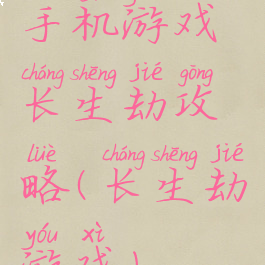 手机游戏
cháng shēng jié gōng
长生劫攻
lüè cháng shēng jié
略(长生劫
yóu xì
游戏)